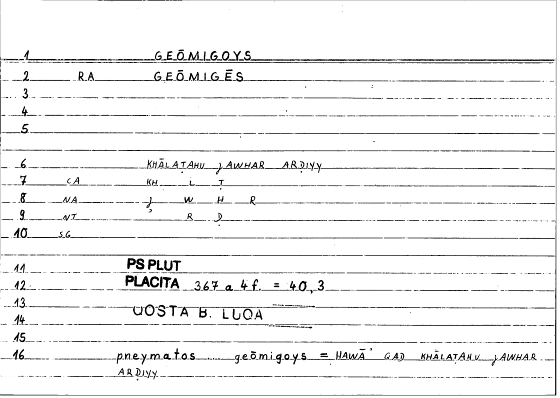 1 GEŌMIGOYS
2 RA GEŌMIGĒS
3
4
5
6 KHĀLAṬAHU JAWHAR ARḌIYY
7 CA KH L Ṭ
8 NA J W H R
9 NT R Ḍ
10 SG
11 PS PLUT
12 PLACITA 367 a 4 f. = 40,3
13 QOSTA B. LUQA
14
15
16 pneymatos geōmigoys = HAWĀ' QAD KHĀLAṬAHU JAWHAR
ARḌIYY